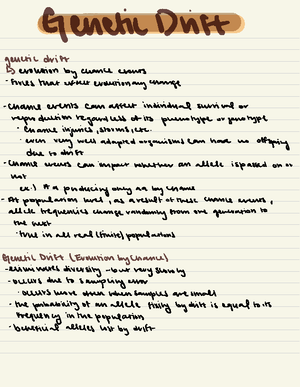 Genetic Drift
genetic drift
↳ evolution by chance events
- Forces that affect evolutionary change
- Chance events can affect individual survival or
reproduction regardless of its phenotype or genotype
• Chance injuries, storms, etc.
• even very well adapted organisms can have no offspring
due to drift
- Chance events can impact whether an allele is passed on or
not
ex:) Aa producing only aa by chance
- At population level, as a result of these chance events,
allele frequencies change randomly from one generation to
the next
• true in all real (finite) populations
Genetic Drift (Evolution by Chance)
- eliminates diversity - but very slowly
- occurs due to sampling error
• occurs more often when samples are small
- the probability of an allele fixing by drift is equal to its
frequency in the population
- beneficial alleles lost by drift